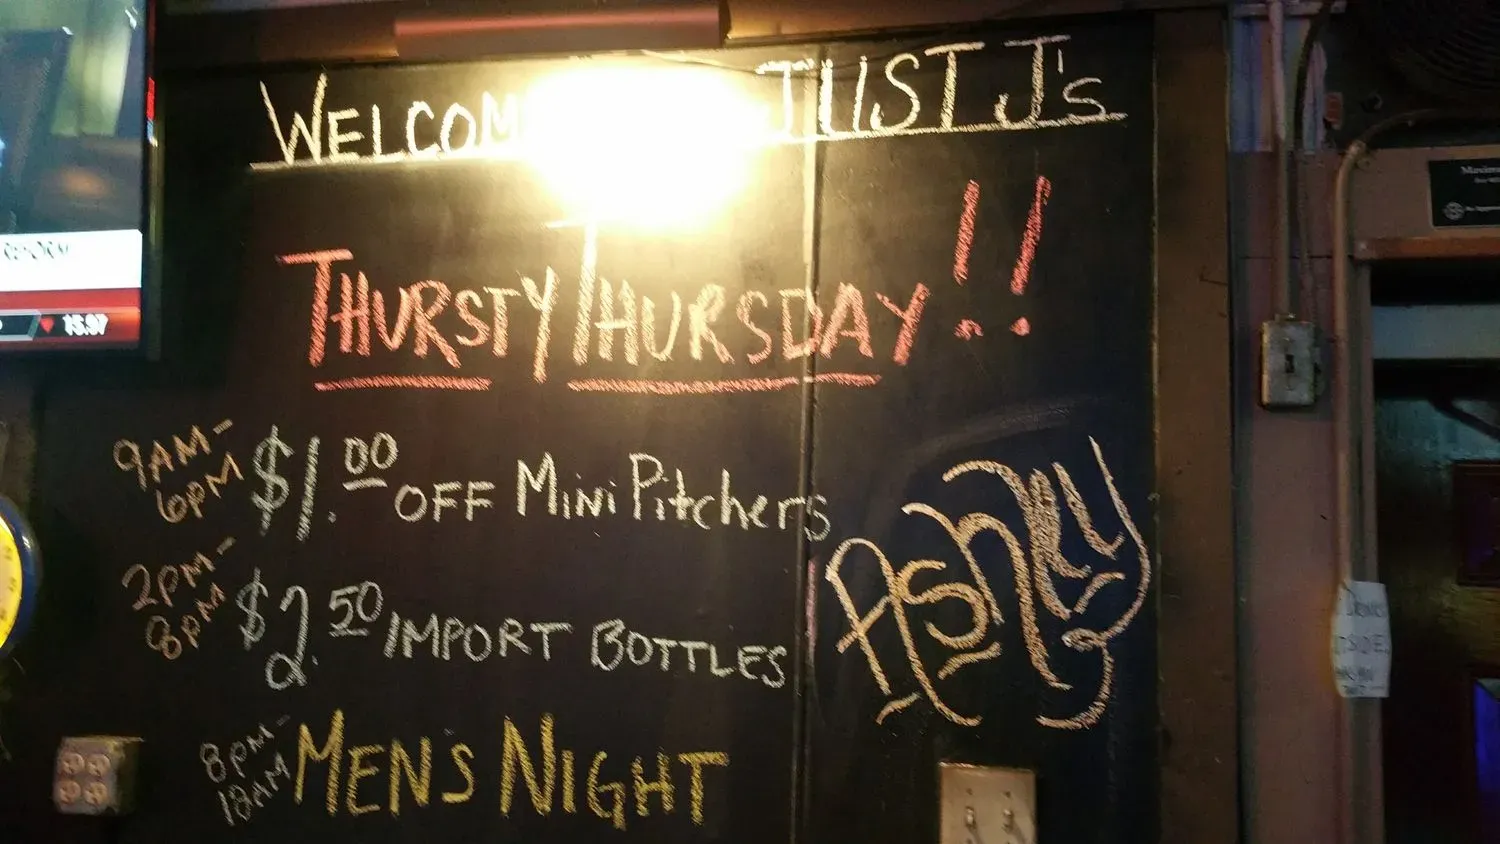 WELCOM JUST J's
THURSTY THURSDAY!!
9AM-
6PM
$1.00 OFF MINI PITCHERS
2PM-
8PM
$2.50 IMPORT BOTTLES
8PM-
MEN'S NIGHT
ASHLEY
15.97